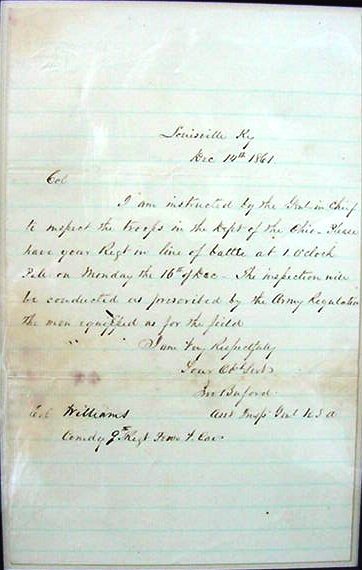 Louisville Ky
Dec 14th 1861
Col
I am instructed by the Genl in Chief
to inspect the troops in the Dept of the Ohio - Please
have your Regt in line of battle at 1 OClock
P.M. on Monday the 16th of Dec - The inspection will
be conducted as prescribed by the Army Regulation
the men equipped as for the field
" " " I am Very Respectfully
Your Obt Servt
Jno Buford
Col Williams Asst Insp Genl U S A
Comdg 9th Regt